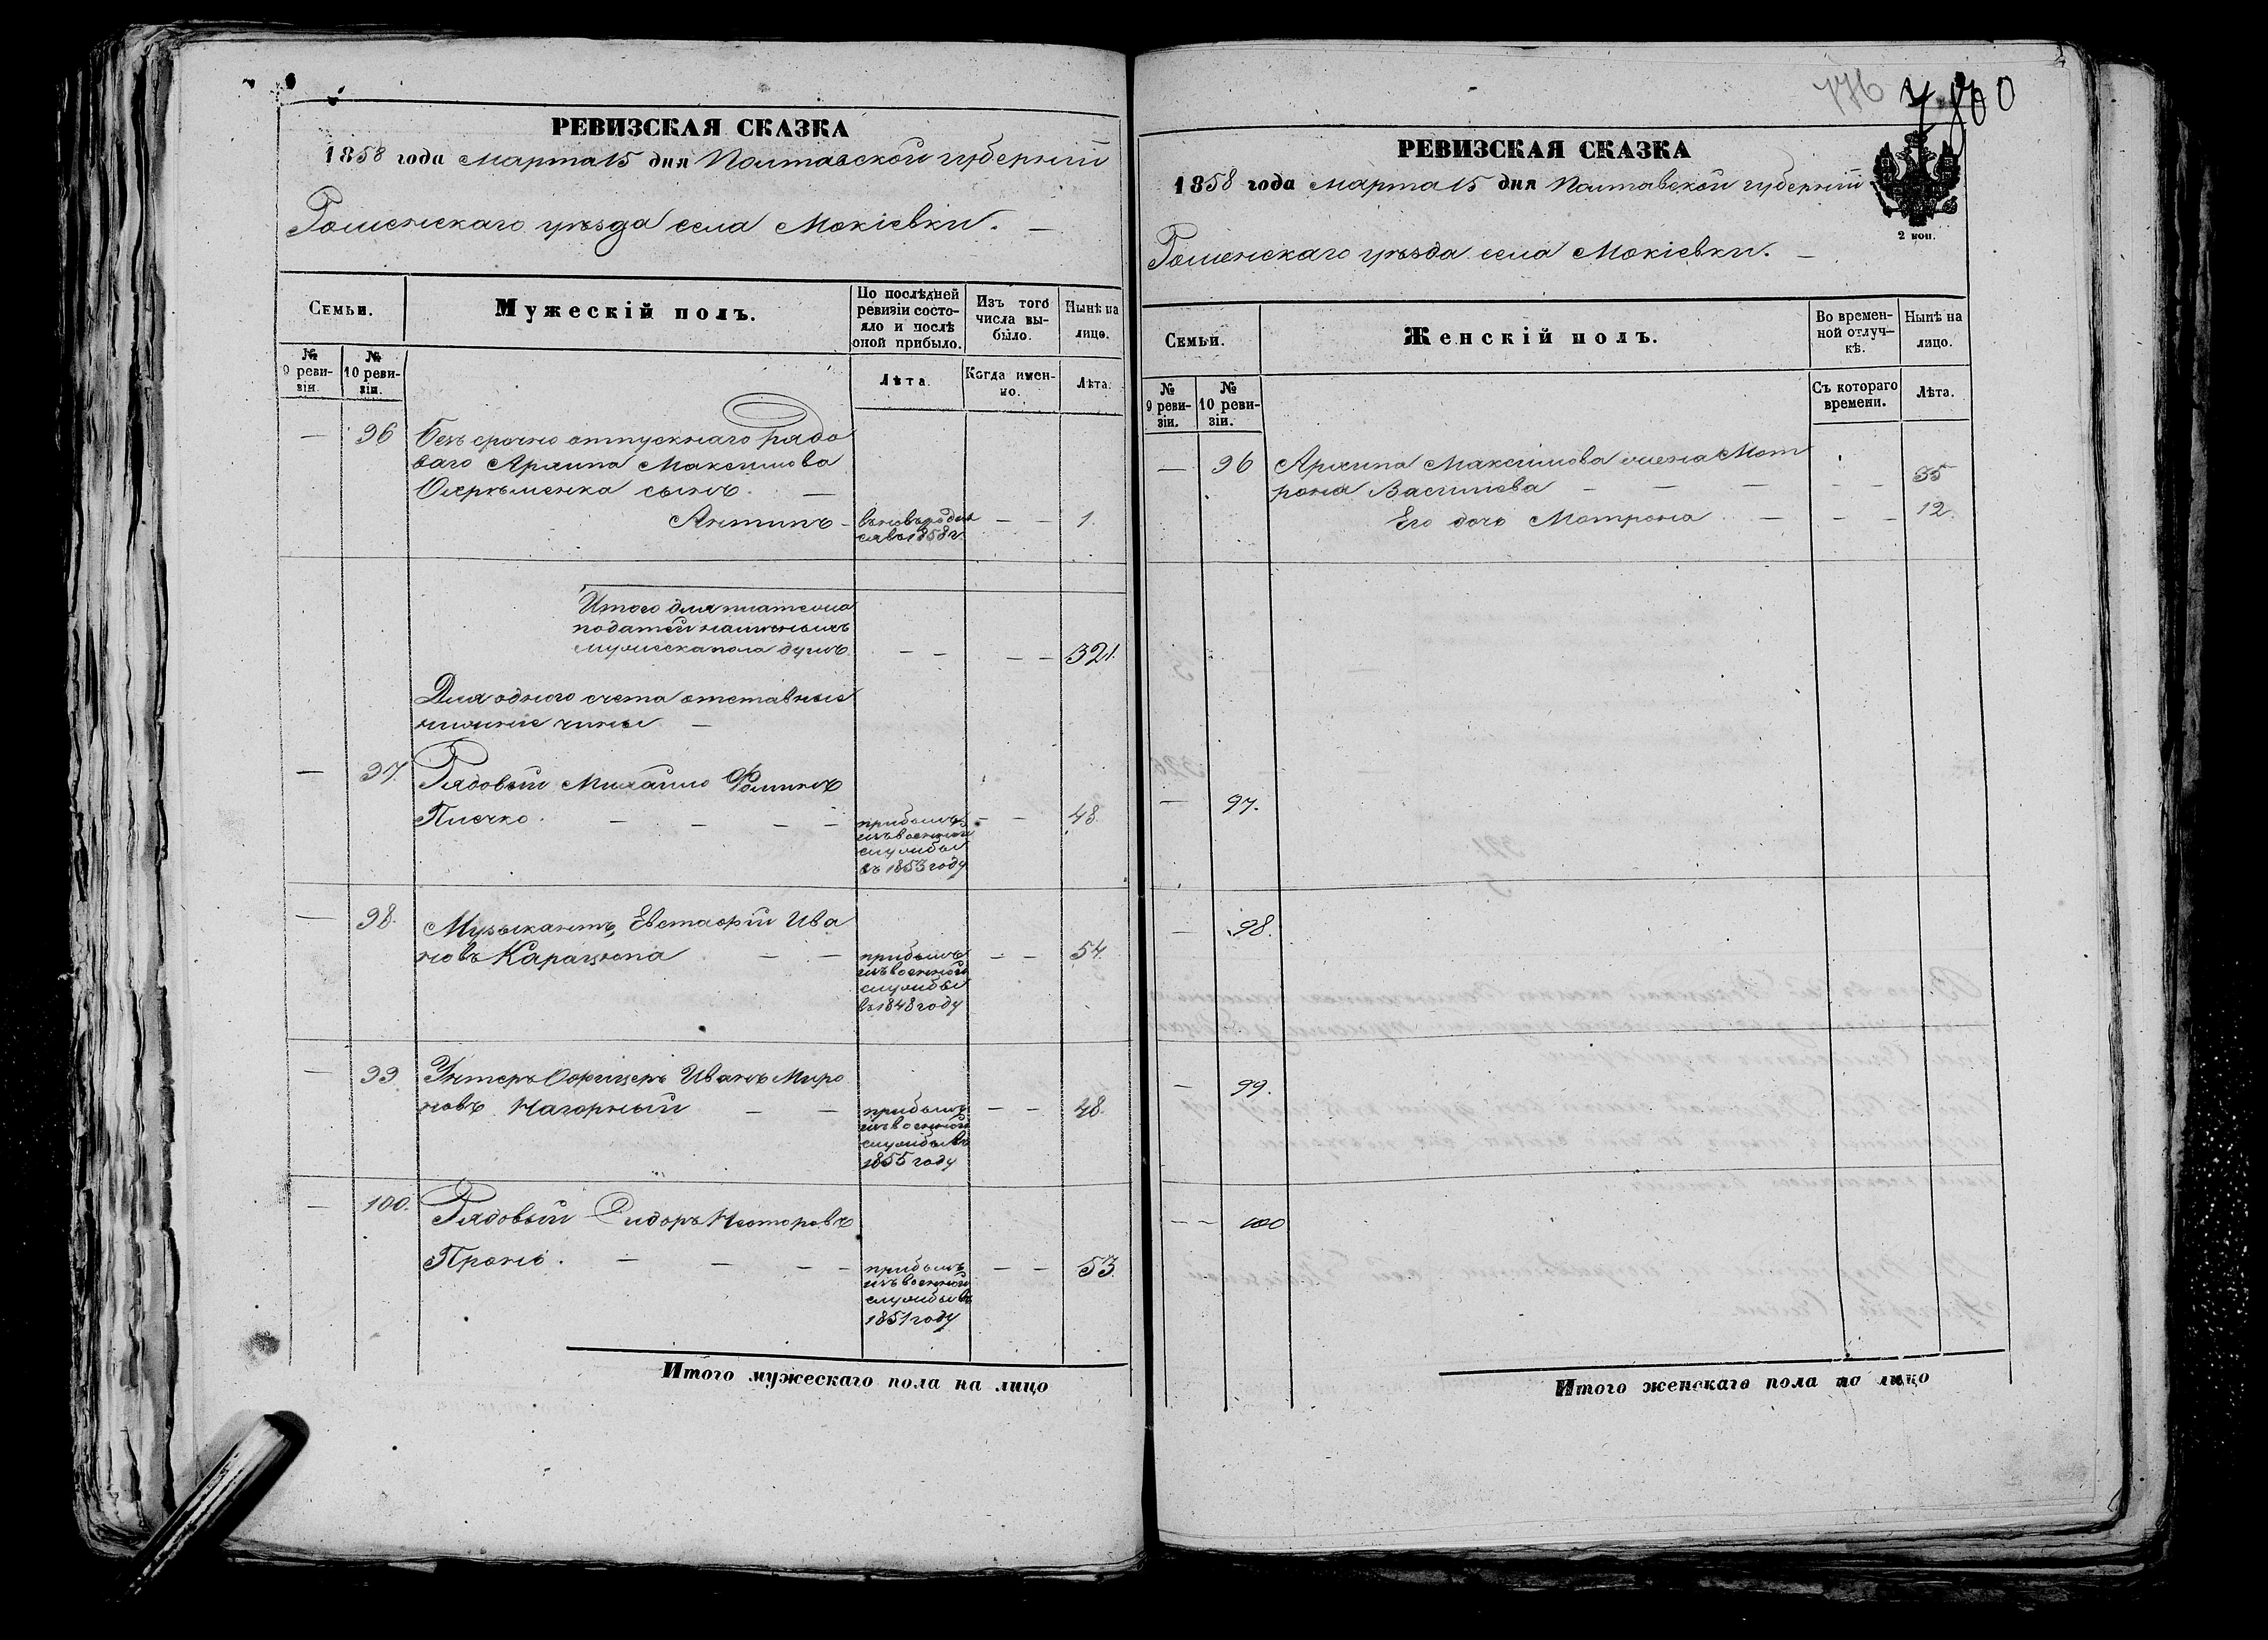 РЕВИЗСКАЯ СКАЗКА
1858 года Марта 15 дня Полтавской губернии
Роменскаго уѣзда села Мокіевки.
Семьи.
Мужескій полъ.
По послѣдней ревизіи состояло и послѣ оной прибыло.
Изъ того числа выбыло.
Ныне на лицо.
№ 9 ревизіи.
№ 10 ревизіи.
Лѣта.
Когда именно.
Лѣта.
— 96 Безсрочно отпускнаго рядо
ваго Архипа Максимова
сынъ. —
Антипъ - вновь родил
ся во 1858 г. — — 1.
Итого для платежа
податей наличныхъ
мужеска пола душъ — — — — 321.
Для одного счета отставные
нижние чины —
— 97. Рядовой Михайло Фоминъ
Плечко. — — — — прибылъ — — 48.
изъ военной
службы
въ 1853 году
— 98. Музыкантъ Евстафій Ива
новъ Карацюпа — — прибылъ — — 54.
изъ военной
службы
въ 1848 году
— 99 Унтеръ Офицеръ Иванъ Миро
новъ Нагорный — — прибылъ — — 48.
изъ военной
службы въ
1855 году
— 100. Рядовый Сидоръ Несторовъ
Пронь. — — — — прибылъ — — 53.
изъ военной
службы въ
1851 году
Итого мужескаго пола на лицо
776
700
РЕВИЗСКАЯ СКАЗКА
1858 года марта 15 дня Полтавской губерніи
2 коп.
Роменскаго уѣзда села Мокіевки. —
Семьи.
Женскій полъ.
Во временной отлучкѣ.
Нынѣ на лицо.
№ 9 ревизіи.
№ 10 ревизіи.
Съ котораго времени.
Лѣта.
— 96 Архипа Максимова жена Мот
рона Васильева — — — — — 35
Его дочь Мотрона — — — 12.
— 97.
— 98.
— 99.
— — 100
Итого женскаго пола на лицо